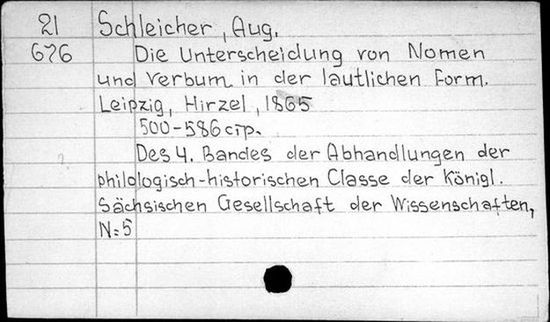 21 Schleicher, Aug.
676 Die Unterscheidung von Nomen
und Verbum in der lautlichen Form.
Leipzig, Hirzel, 1865
500-586 стр.
Des 4. Bandes der Abhandlungen der
philologisch-historischen Classe der Königl.
Sächsischen Gesellschaft der Wissenschaften,
N=5